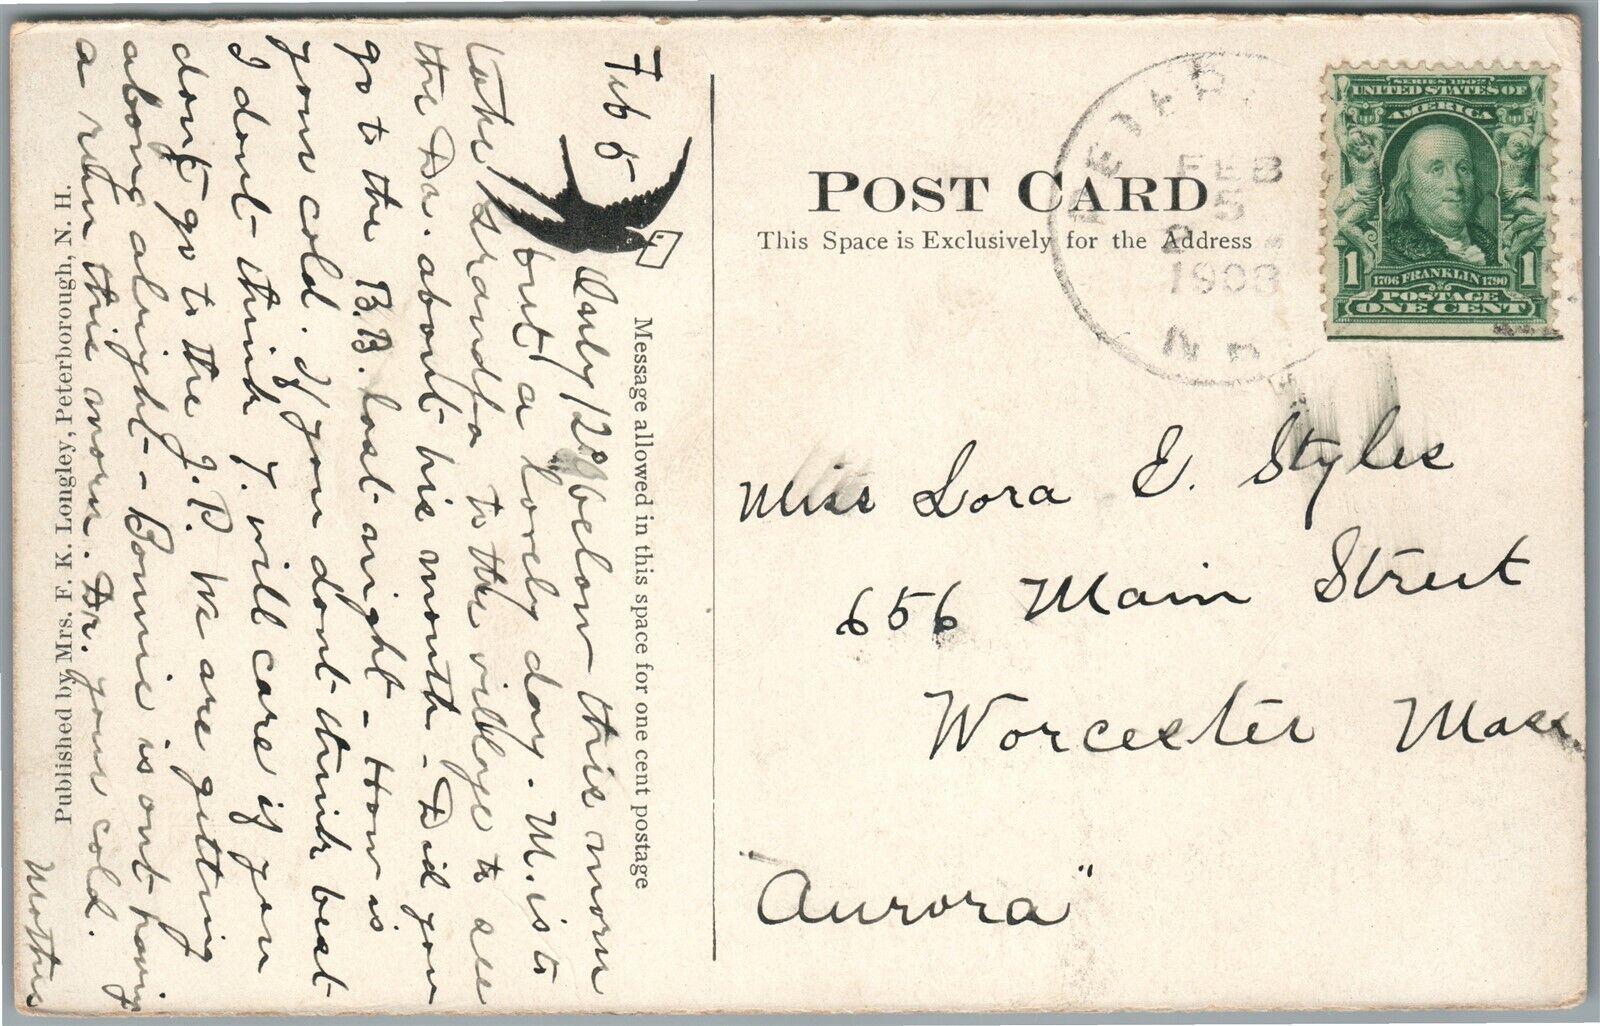 Feb 5
Only 12° below this morn
but a lovely day. M. is to
take Grandpa to the village to see
the Dr. about his mouth - Did you
go to the B.B. last night - How is
your cold. If you dont think best
I dont think F. will care if you
dont go to the J.P. We are getting
along alright - Bonnie is out having
a run this morn. Dr. your cold.
Mother
Message allowed in this space for one cent postage
Published by Mrs. F. K. Longley, Peterborough, N. H.
POST CARD
This Space is Exclusively for the Address
FEB
5
2
1908
SERIES 1902
UNITED STATES OF
AMERICA
1 1706 FRANKLIN 1790 1
POSTAGE
ONE CENT
Miss Lora E. Styles
656 Main Street
Worcester Mass.
"Aurora"